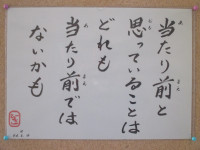 当たり前と
思っていることは
どれも
当たり前では
ないかも